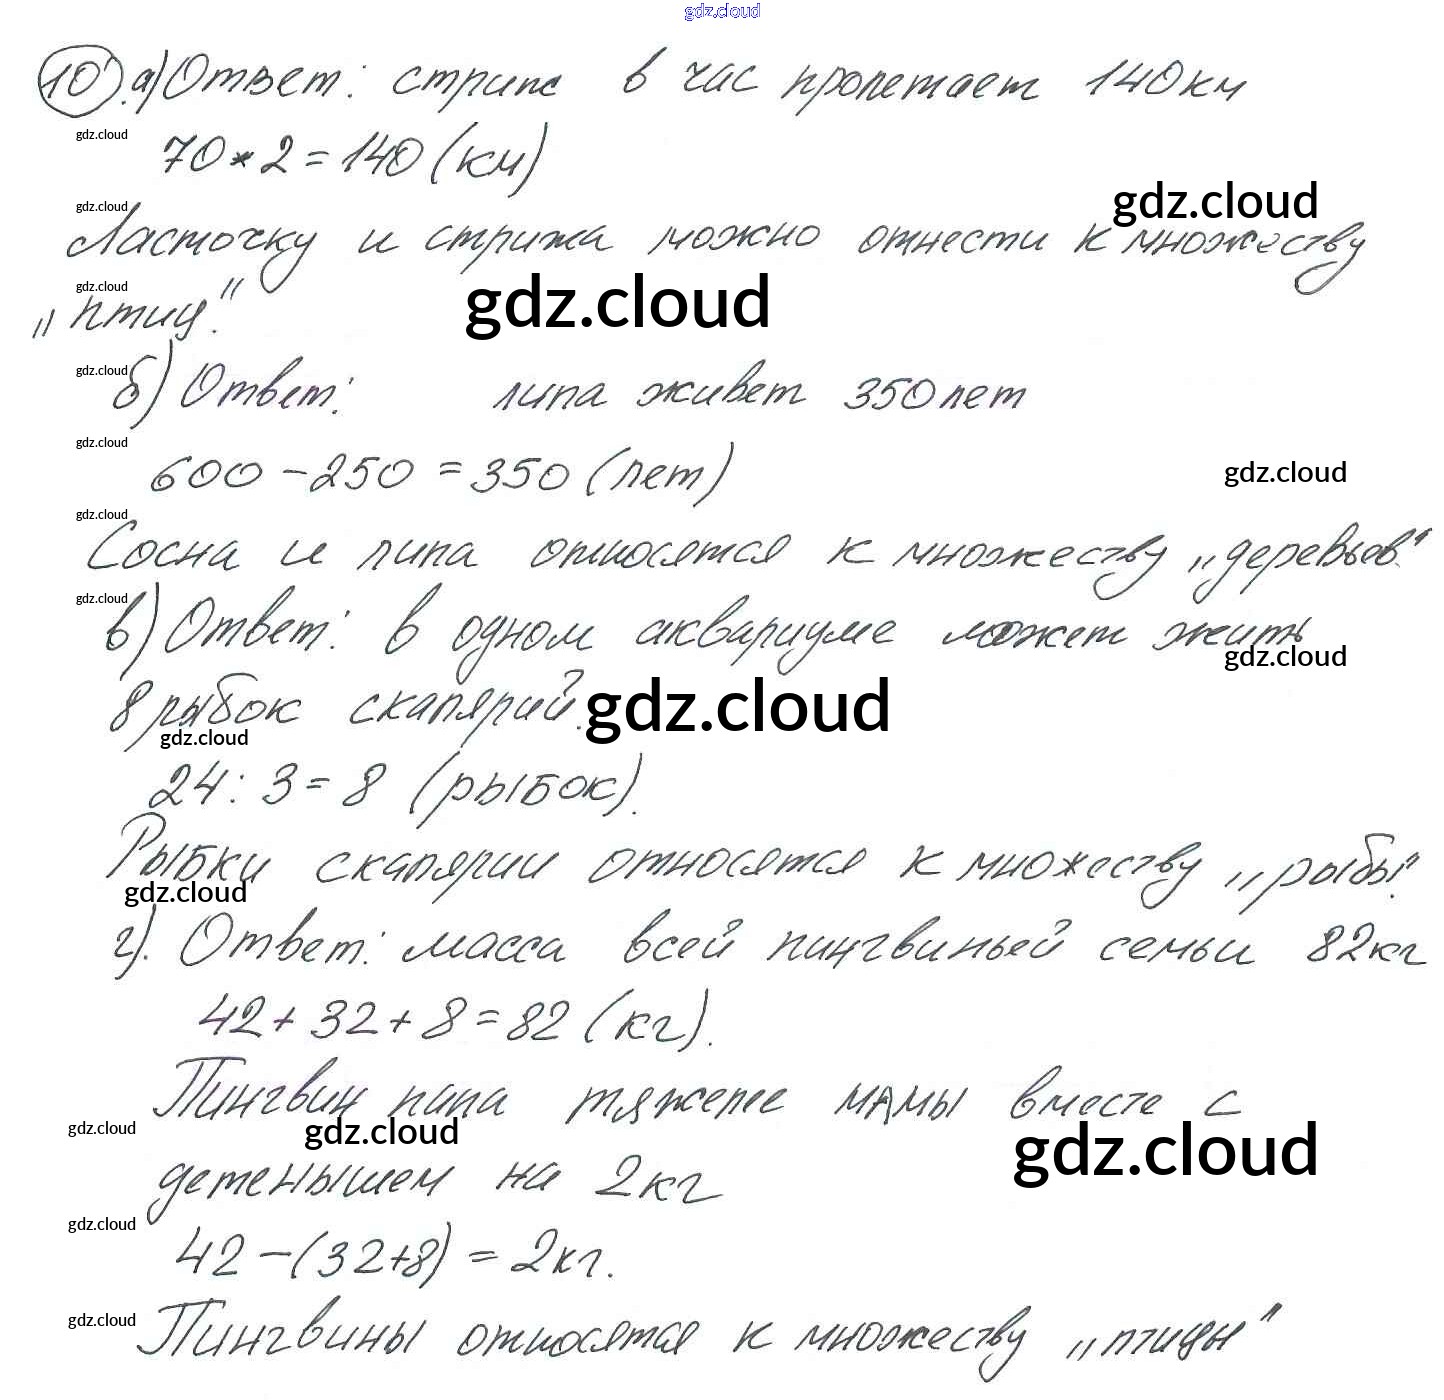 gdz.cloud
10. а) Ответ: стриж в час пролетает 140 км
gdz.cloud
70 * 2 = 140 (км)
gdz.cloud
gdz.cloud
Ласточку и стрижа можно отнести к множеству
gdz.cloud
gdz.cloud
„птиц."
gdz.cloud
б) Ответ: липа живет 350 лет
gdz.cloud
600 - 250 = 350 (лет)
gdz.cloud
gdz.cloud
Сосна и липа относятся к множеству „деревьев."
gdz.cloud
в) Ответ: в одном аквариуме может жить
gdz.cloud
8 рыбок скалярий.
gdz.cloud
gdz.cloud
24 : 3 = 8 (рыбок).
Рыбки скалярии относятся к множеству „рыбы."
gdz.cloud
г). Ответ: масса всей пингвиньей семьи 82 кг
42 + 32 + 8 = 82 (кг).
Пингвин папа тяжелее мамы вместе с
gdz.cloud
gdz.cloud
gdz.cloud
детенышем на 2 кг
gdz.cloud
42 - (32+8) = 2 кг.
gdz.cloud
Пингвины относятся к множеству „птицы"